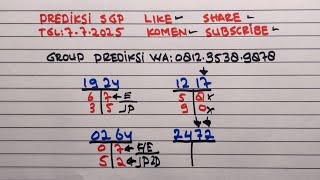 PREDIKSI SGP LIKE SHARE
TGL:7.7.2025 KOMEN SUBSCRIBE
GROUP PREDIKSI WA:0812.9538.9878
1924 1217
6 7 ← E 5 6 x
3 5 JP 9 0 x
0264 2472
0 7 ← E/E
5 2 JP2D